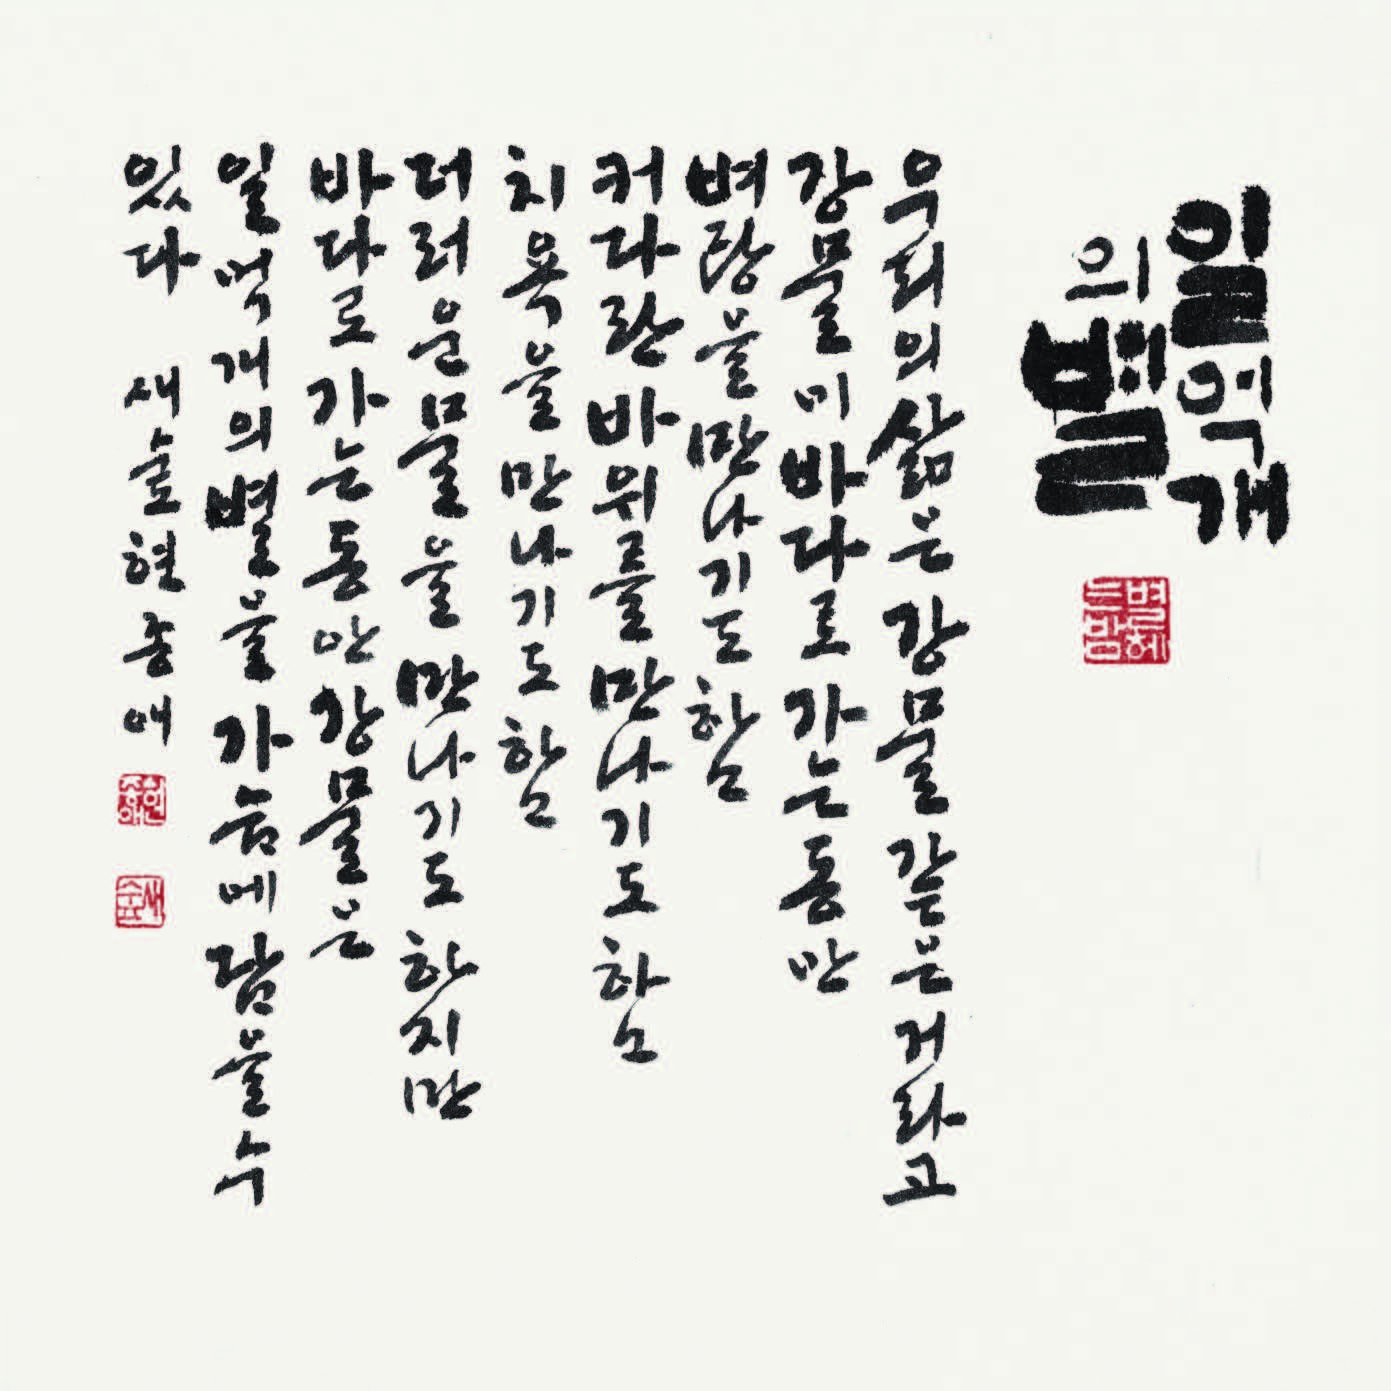 일억개
의 별
별헤
는밤
우리의 삶은 강물 같은 거라고
강물이 바다로 가는 동안
벼랑을 만나기도 하고
커다란 바위를 만나기도 하고
치욕을 만나기도 하고
더러운 물을 만나기도 하지만
바다로 가는 동안 강물은
일억개의 별을 가슴에 담을 수
있다 새숲
새숲